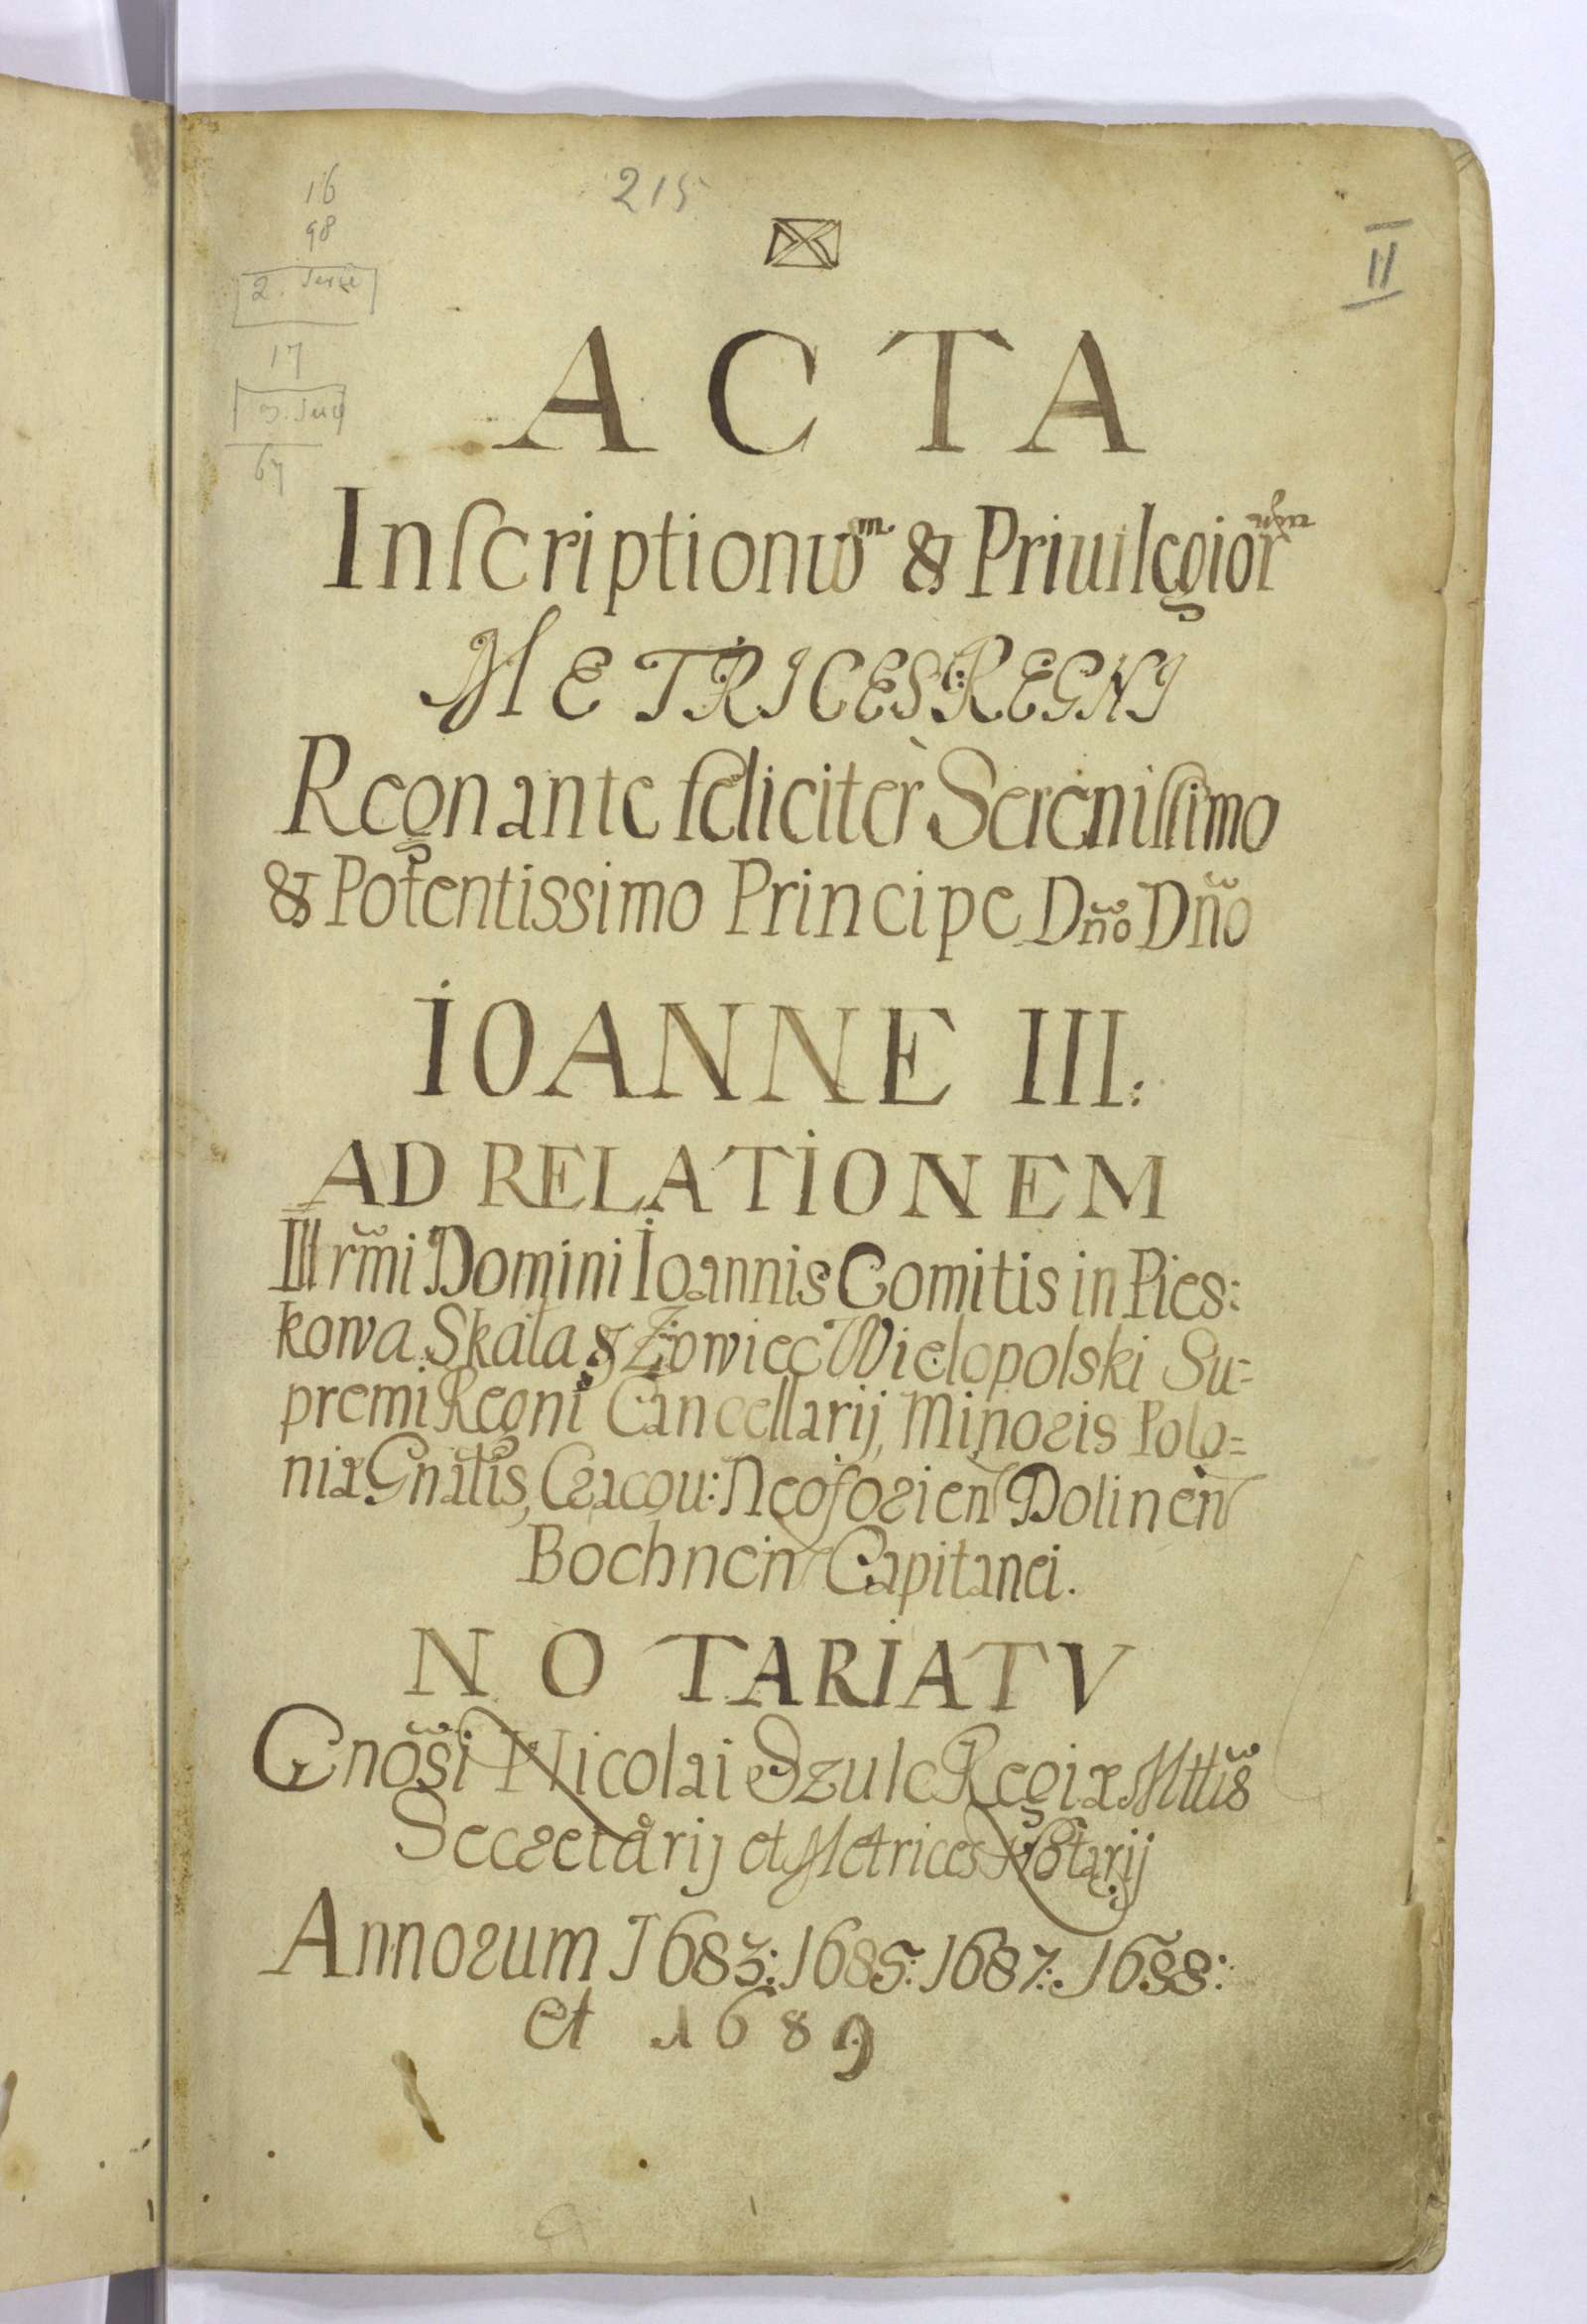 16
98
215
II
2. Serie
17
67
ACTA
Inſcriptionũm & Priuilegiorum
METRICES REGNI
Regnante feliciter Sereniſſimo
& Potentissimo Principe Dn̄o Dn̄o
IOANNE III:
AD RELATIONEM
Illrm̄i Domini Ioannis Comitis in Pies:
kowa Skała & Żÿwiec Wielopolski Su=
premi Regni Cancellarij, Minoris Polo=
niæ Gn̄atis, Cracou: Neoforien̄ Dolinen̄
Bochnen̄ Capitanei.
NOTARIATV
Gnōsi Nicolai Szulc Regiæ Mttīs
Secretarij et Metrices Notarij
Annorum 1683: 1685: 1687: 1688:
et 1689